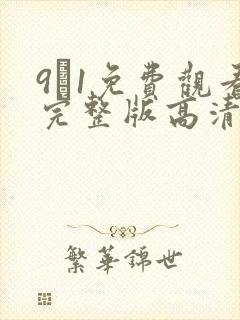 9͈1免費觀看
完整版高清
繁華錦世